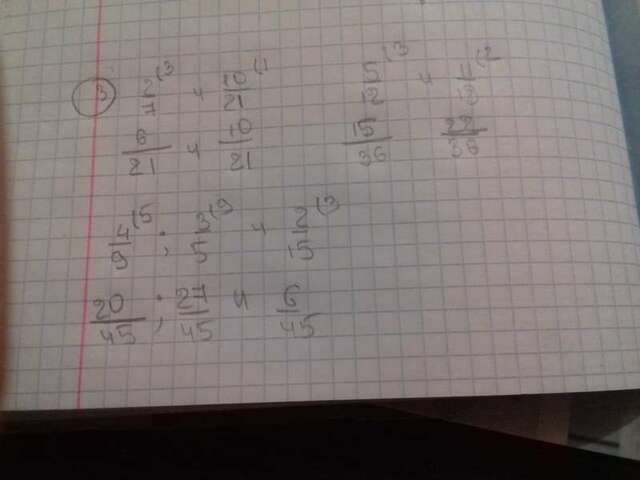 ③ 2/7\3 и 10/21\1   5/12\3 и 11/18\2
6/21 и 10/21   15/36   22/36
4/9\5 ; 3/5\9 и 2/15\3
20/45 ; 27/45 и 6/45